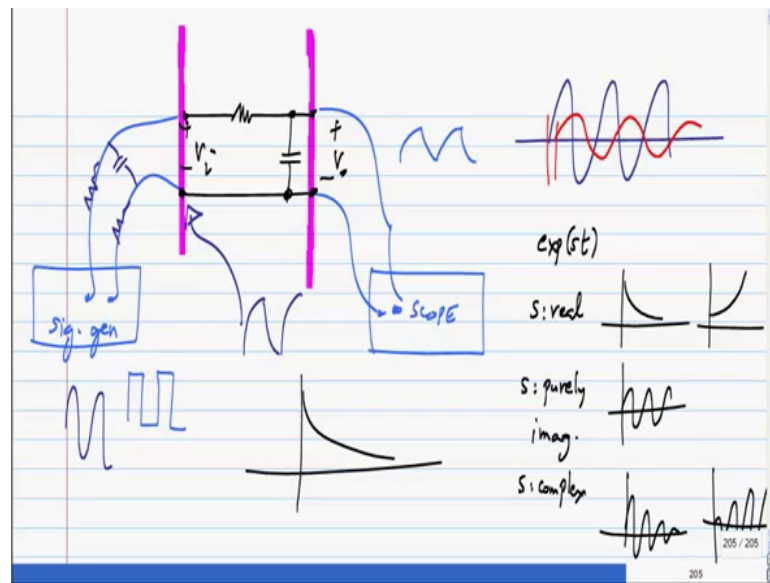 +
Vi
-
+
Vo
-
sig. gen
SCOPE
exp(st)
s: real
s: purely
imag.
s: complex
205 / 205
205